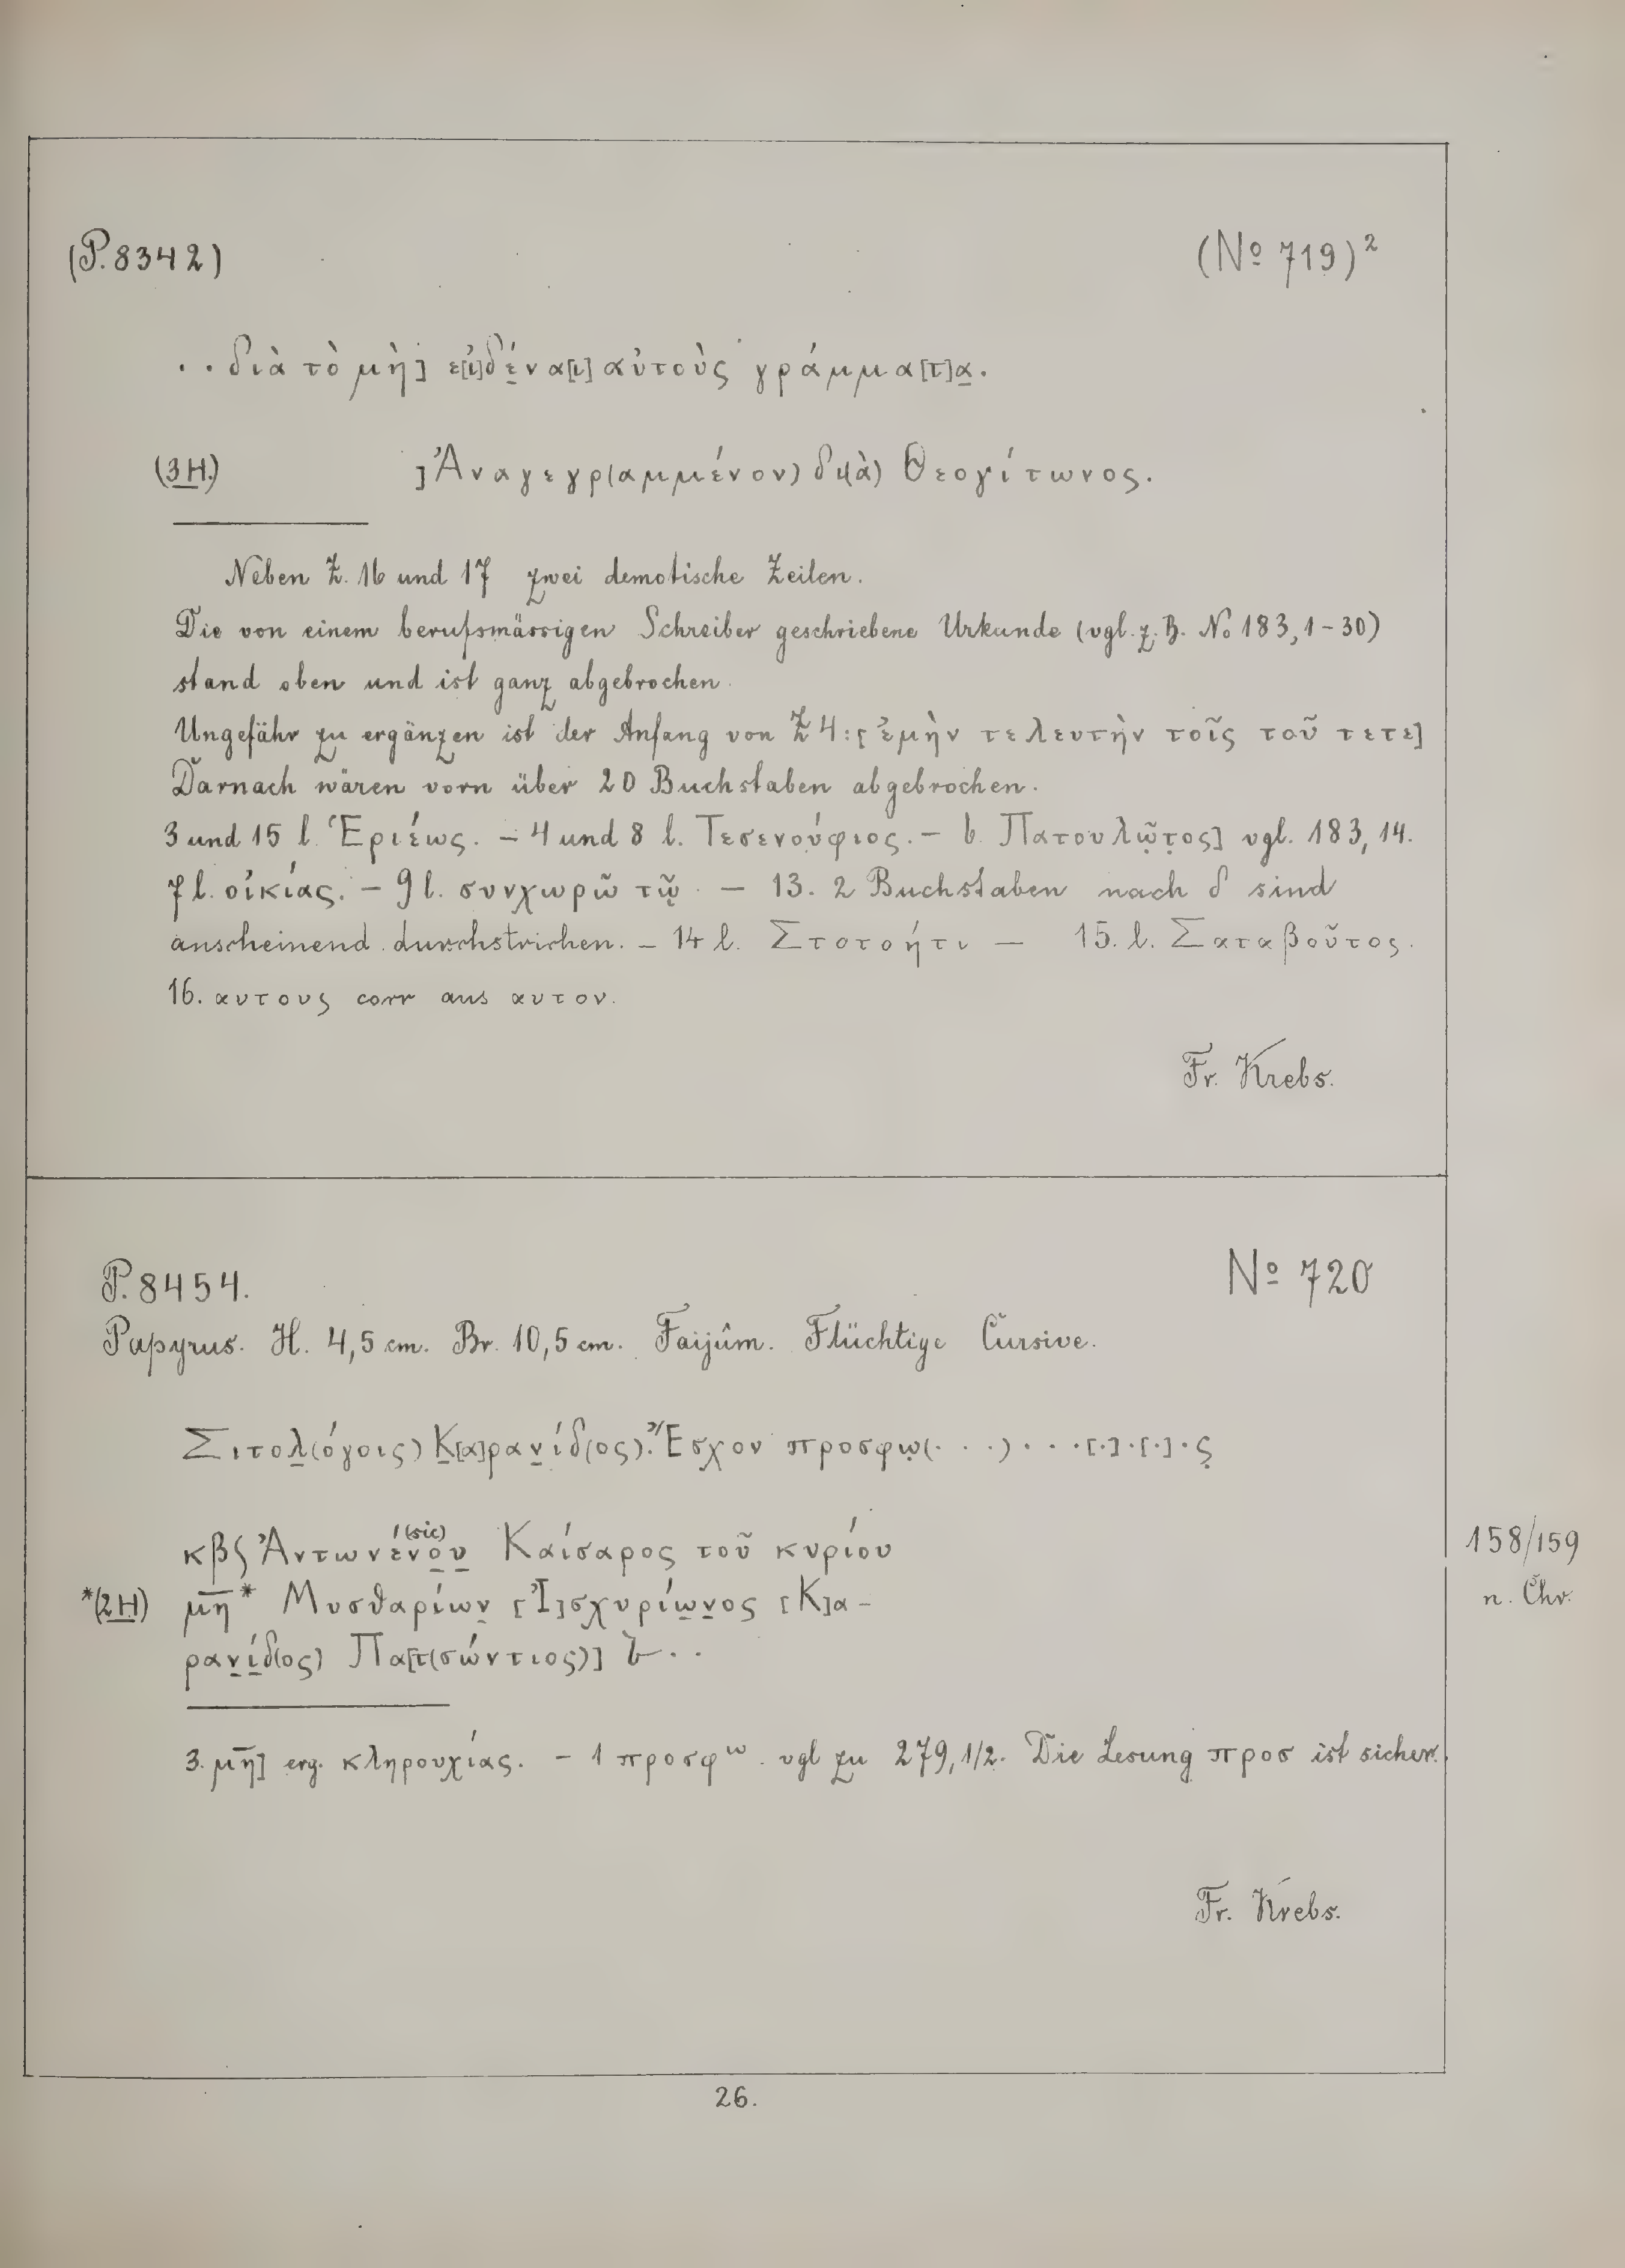 (P. 8342) (Nº 719)²
. . διὰ τὸ μὴ] ε[ἰ]δένα[ι] αὐτοὺς γράμμα[τ]α.
(3 H.) ]Ἀναγεγρ(αμμένον) δι(ὰ) Θεογίτωνος.
Neben Z. 16 und 17 zwei demotische Zeilen.
Die von einem berufsmässigen Schreiber geschriebene Urkunde (vgl. z. B. No 183, 1-30)
stand oben und ist ganz abgebrochen.
Ungefähr zu ergänzen ist der Anfang von Z 4: [ἐμὴν τελευτὴν τοῖς τοῦ τετε]
Darnach wären vorn über 20 Buchstaben abgebrochen.
3 und 15 l. Ἑριέως. – 4 und 8 l. Τεσενούφιος. – 6. Πατουλῶ̣τ̣ος] vgl. 183, 14.
7 l. οἰκίας. – 9 l. συνχωρῶ τῷ – 13. 2 Buchstaben nach δ sind
anscheinend durchstrichen. – 14 l. Στοτοήτι – 15. l. Σαταβοῦτος.
16. αυτους corr aus αυτον.
Fr. Krebs.
P. 8454. Nº 720
Papyrus. H. 4,5 cm. Br. 10,5 cm. Faijûm. Flüchtige Cursive.
Σιτολ(όγοις) Κ[α]ρανίδ(ος). Ἔσχον προσφω̣(. . .) . . . [.] . [.] . ς̣
κβς Ἀντωνένου (sic) Καίσαρος τοῦ κυρίου 158/159
*(2 H) μη̅* Μυσθαρίων̣ [Ἰ]σχυρίωνος [Κ]α- n. Chr.
ρανίδ(ος) Πα[τ(σώντιος)] 𐅵 . .
3. μη̅] erg. κληρουχίας. – 1 προσφω. vgl zu 279, 1/2. Die Lesung προσ ist sicher.
Fr. Krebs.
26.